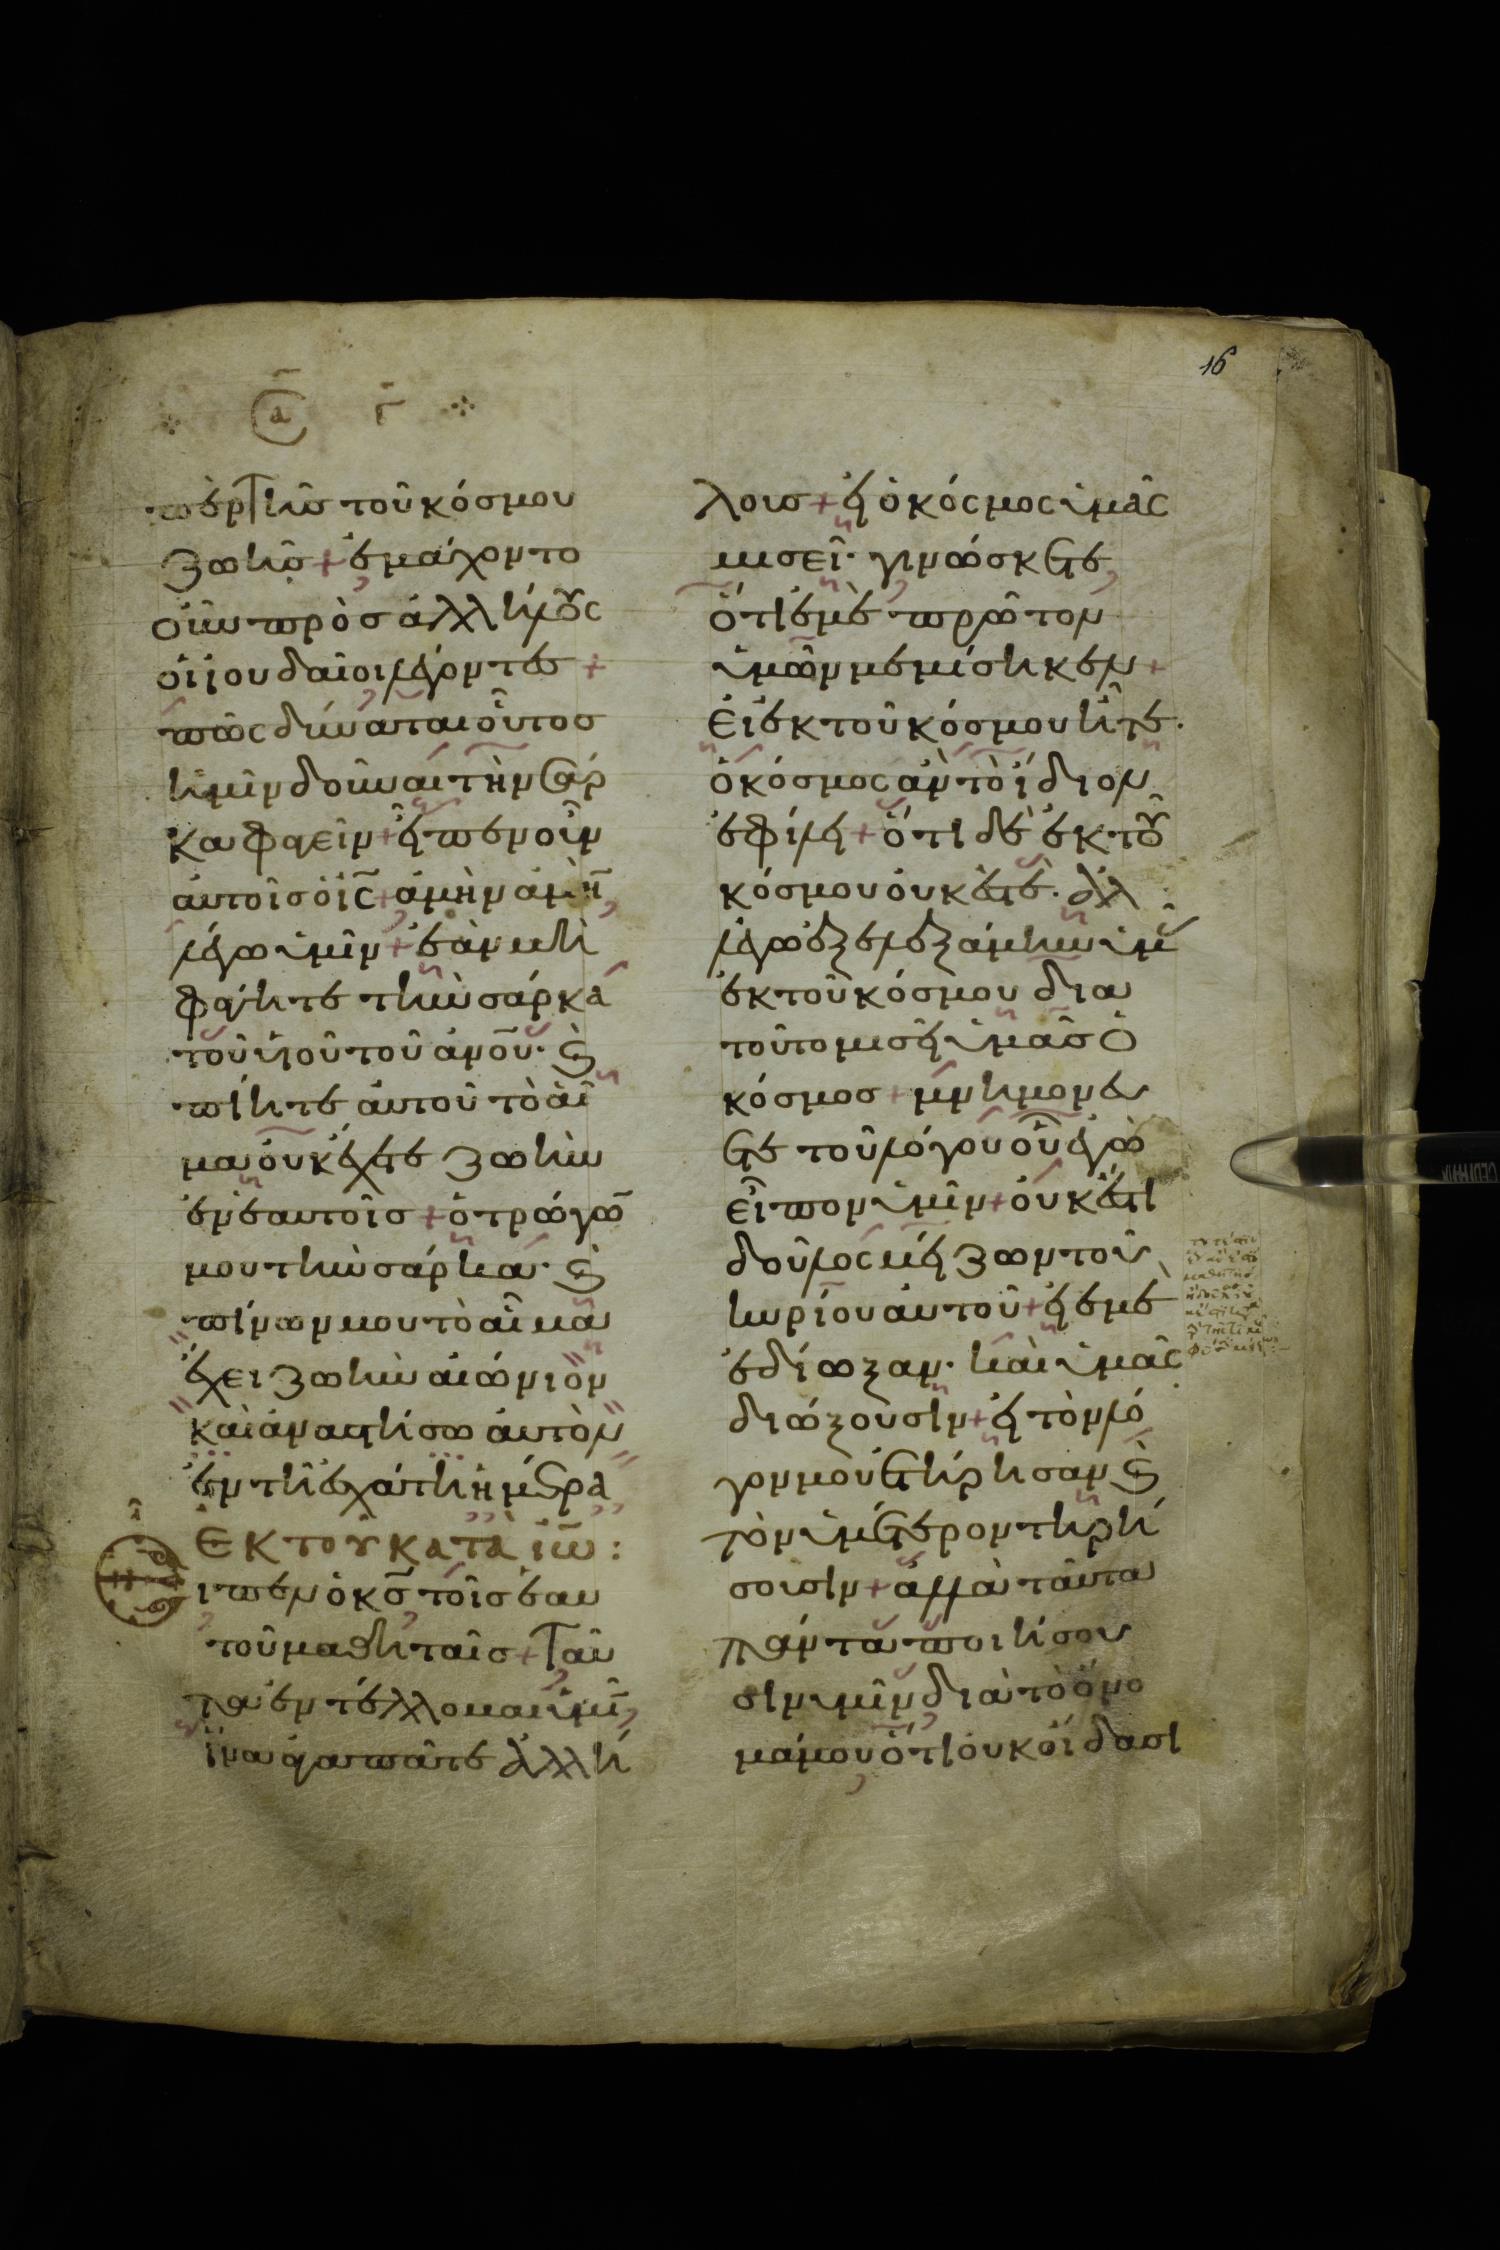 16
α Γ
πὲρ τῆς τοῦ κόσμου
ζωῆς + ἐμάχοντο
οὖν πρὸς ἀλλήλους
οἱ ἰουδαῖοι λέγοντες +
πῶς δύναται οὗτος
ἡμῖν δοῦναι τὴν σάρ
κα φαγεῖν + εἶπεν οὖν
αὐτοῖς ὁ ις + ἀμὴν ἀμὴν
λέγω ὑμῖν + ἐὰν μὴ
φάγητε τὴν σάρκα
τοῦ υἱοῦ τοῦ ανου · καὶ
πίητε αὐτοῦ τὸ αἷ
μα οὐκ ἔχετε ζωὴν
ἐν ἑαυτοῖς + ὁ τρώγων
μου τὴν σάρκα · καὶ
πίνων μου τὸ αἷμα
ἔχει ζωὴν αἰώνιον
καὶ ἀναστήσω αὐτὸν
ἐν τῆ ἐσχάτη ἡμέρα
ἐκ τοῦ κατὰ ἰω :
ιπεν ὁ κς τοῖς ἑαυ
τοῦ μαθηταῖς + ταῦ
τα ἐντέλλομαι ὑμῖν
ἵνα ἀγαπᾶτε ἀλλή
λους + εἰ ὁ κόσμος ὑμᾶς
μισεῖ · γινώσκετε
ὅτι ἐμὲ πρῶτον
ὑμῶν μεμίσηκεν +
εἰ ἐκ τοῦ κόσμου ἦτε ·
ὁ κόσμος ἀν τὸ ἴδιον
ἐφίλει + ὅτι δὲ ἐκ τοῦ
κόσμου οὐκ ἐστέ · ἀλλ
ἐγὼ ἐξελεξάμην ὑμ
ἐκ τοῦ κόσμου δια
τοῦτο μισεῖ ὑμᾶς ὁ
κόσμος + μνημονεύ
ετε τοῦ λόγου οὗ ἐγὼ
εἶπον ὑμῖν + οὐκ ἔστι
δοῦλος μείζων τοῦ
κυρίου αὐτοῦ + εἰ ἐμὲ
ἐδίωξαν · καὶ ὑμᾶς
διώξουσιν + εἰ τὸν λό
γον μου ἐτήρησαν καὶ
τὸν ὑμέτερον τηρή
σουσιν + ἀλλὰ ταῦτα
πάντα ποιήσου
σιν ὑμῖν διὰ τὸ ὄνο
μά μου ὅτι οὐκ οἴδασι